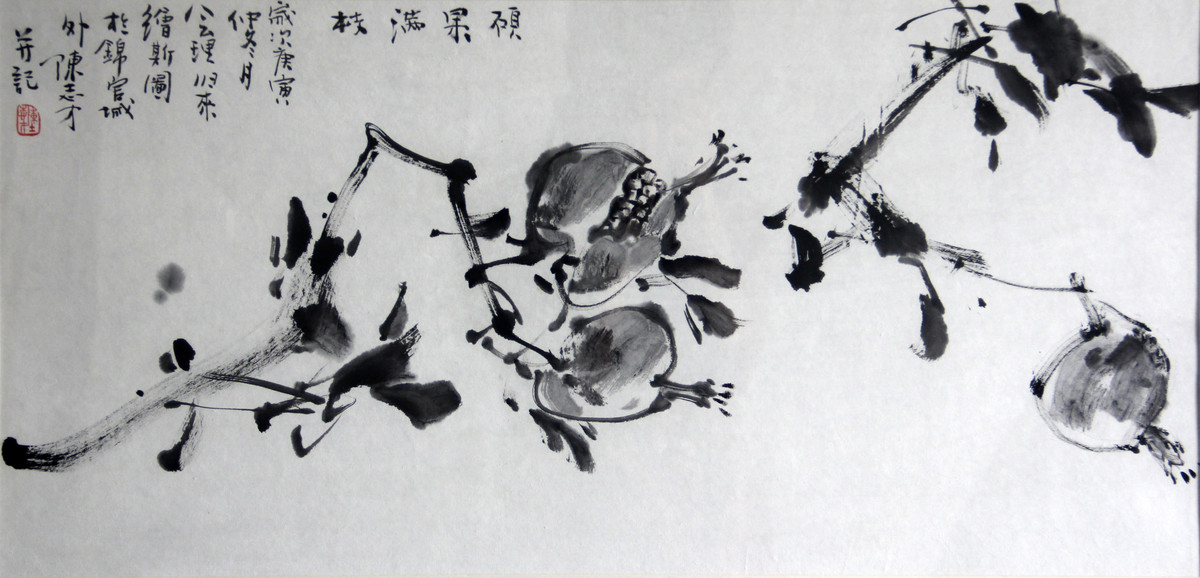 碩果滿枝
歲次庚寅
仲冬月
会理归來
繪斯圖
於錦官城
外陳志才
并記